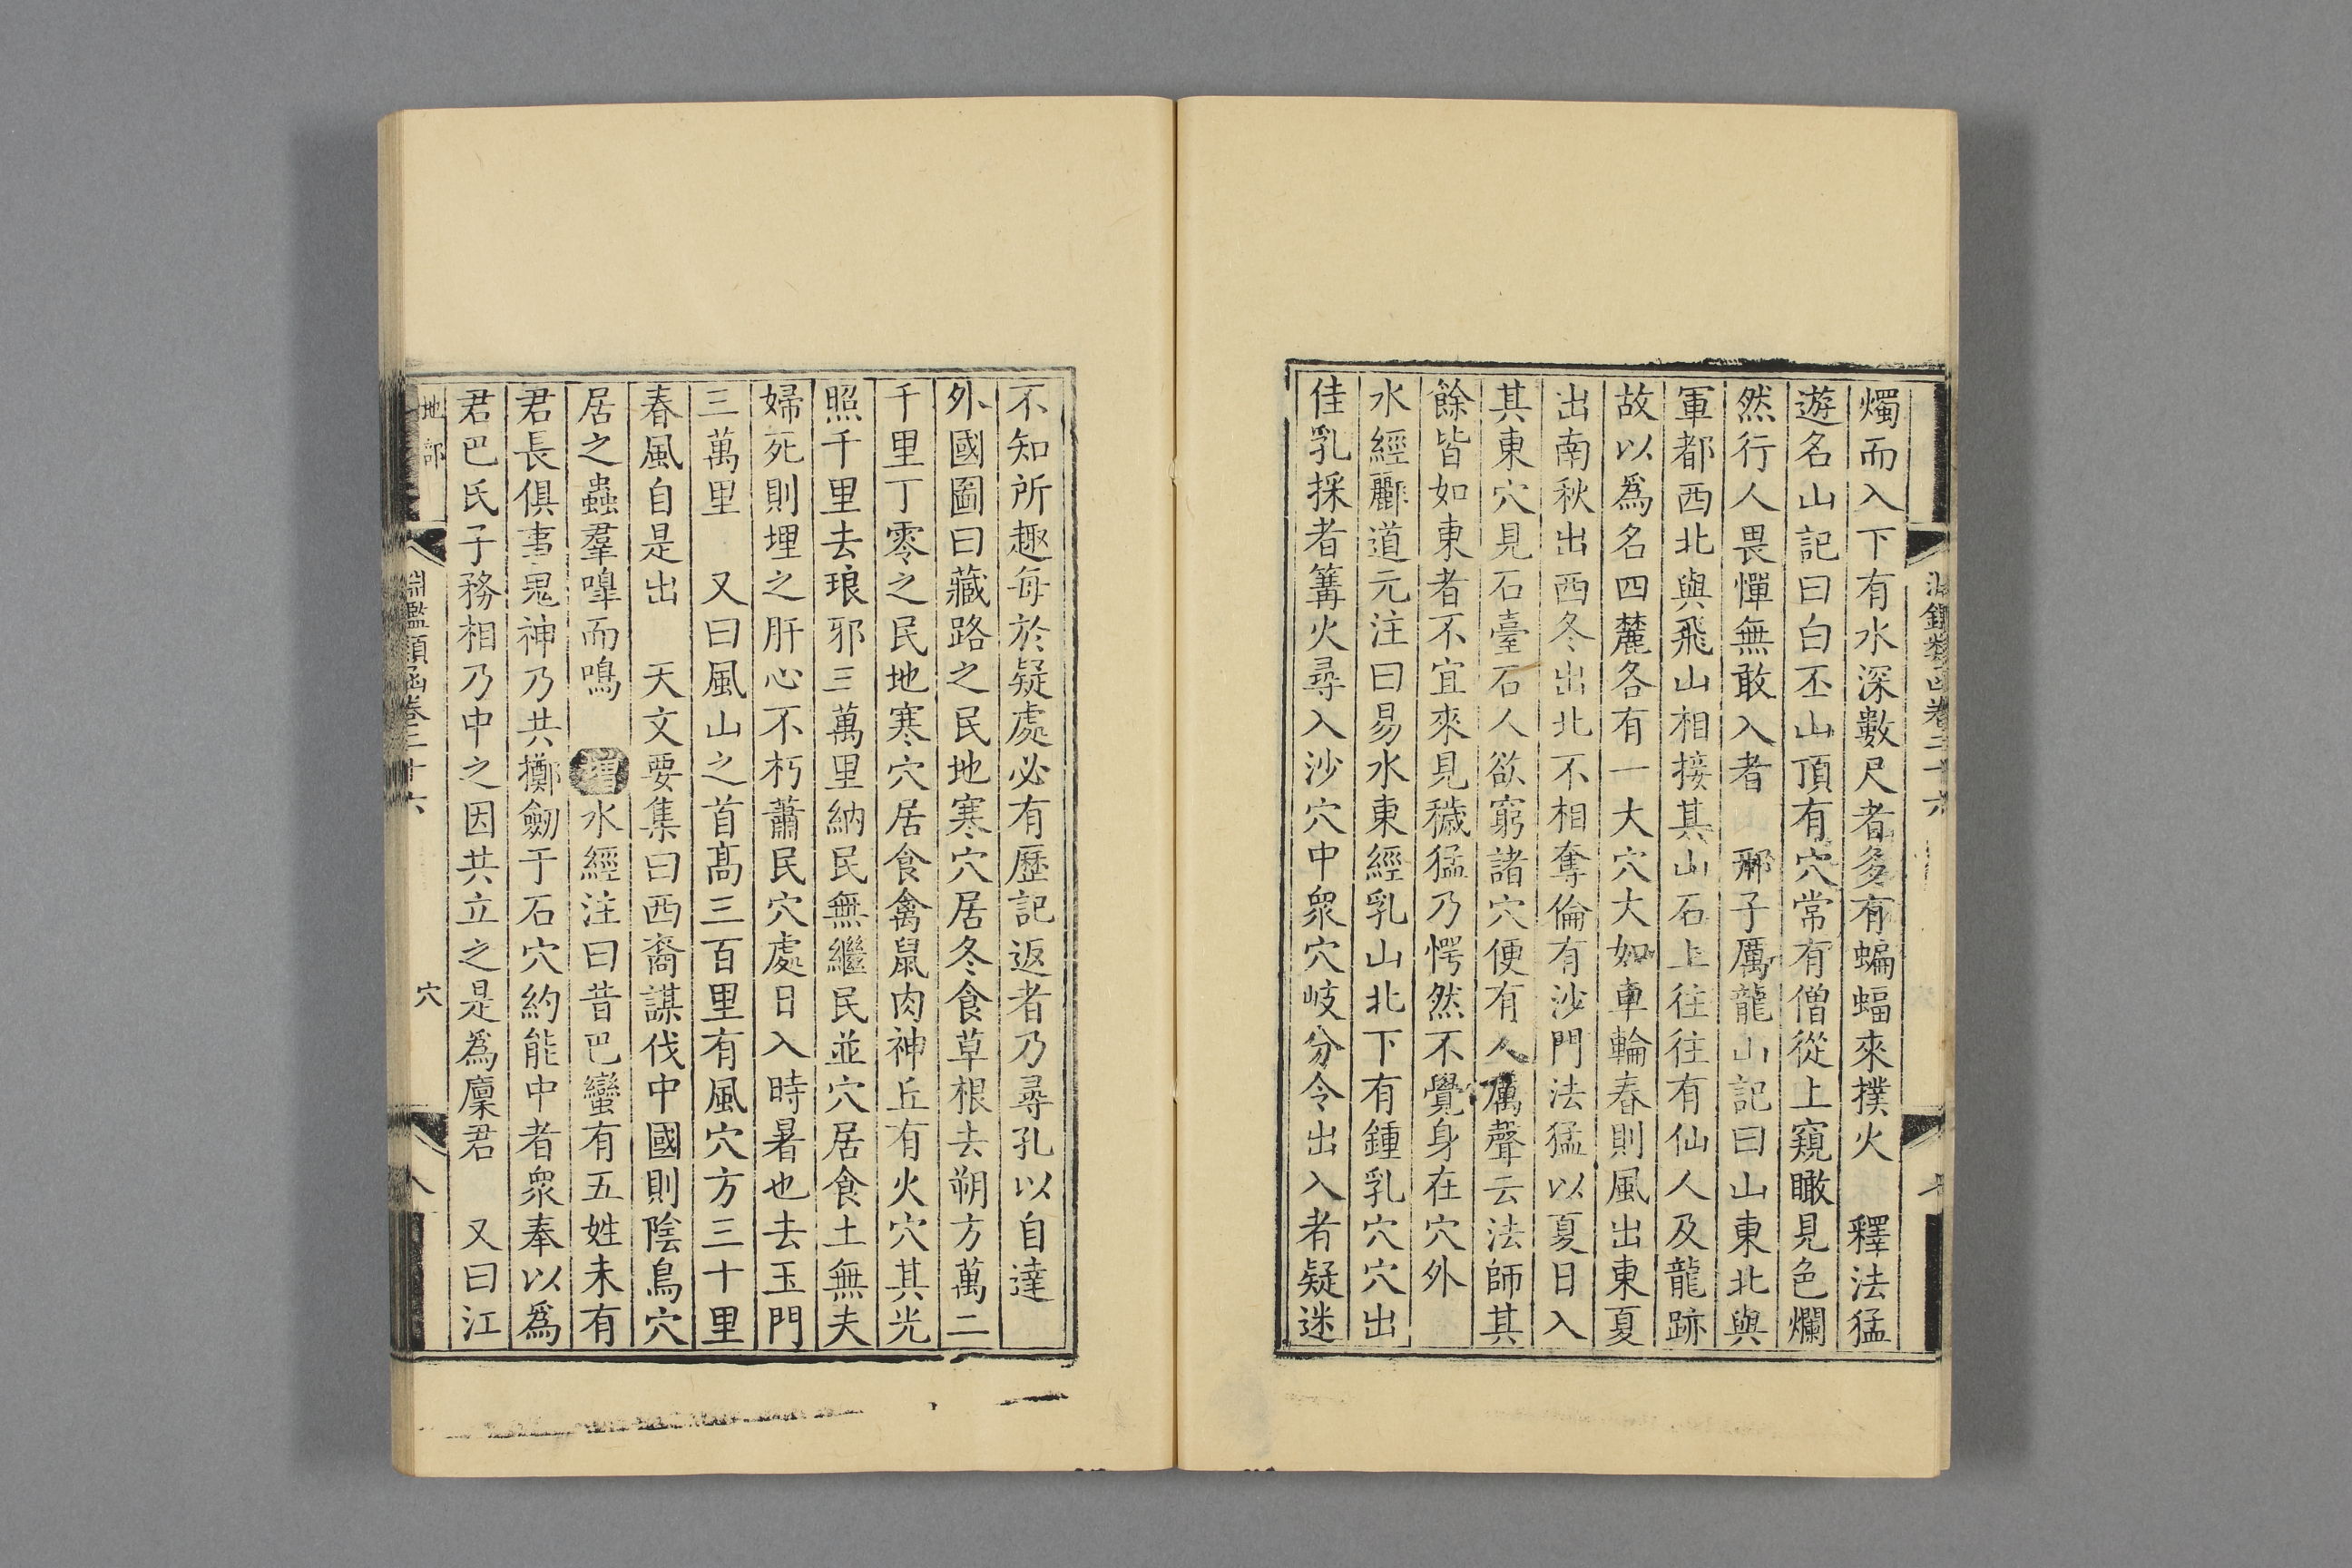 燭而入下有水深數尺者多有蝙蝠來撲火　釋法猛
遊名山記曰白丕山頂有穴常有僧從上窺瞰見色爛
然行人畏憚無敢入者　酈子厲龍山記曰山東北與
軍都西北與飛山相接其山石上往往有仙人及龍跡
故以爲名四麓各有一大穴大如車輪春則風出東夏
出南秋出西冬出北不相奪倫有沙門法猛以夏日入
其東穴見石臺石人欲窮諸穴便有人厲聲云法師其
餘皆如東者不宜來見穢猛乃愕然不覺身在穴外
水經酈道元注曰易水東經乳山北下有鍾乳穴穴出
佳乳採者篝火尋入沙穴中衆穴岐分令出入者疑迷
不知所趣每於疑處必有歷記返者乃尋孔以自達
外國圖曰藏路之民地寒穴居冬食草根去朔方萬二
千里丁零之民地寒穴居食禽鼠肉神丘有火穴其光
照千里去琅邪三萬里納民無繼民並穴居食土無夫
婦死則埋之肝心不朽蕭民穴處日入時暑也去玉門
三萬里　又曰風山之首高三百里有風穴方三十里
春風自是出　天文要集曰西裔謀伐中國則陰鳥穴
居之蟲羣嘷而鳴　增水經注曰昔巴蠻有五姓未有
君長俱事鬼神乃共擲劒于石穴約能中者衆奉以爲
君巴氏子務相乃中之因共立之是爲廩君　又曰江
地部
淵鑑類函卷二十六
穴
八